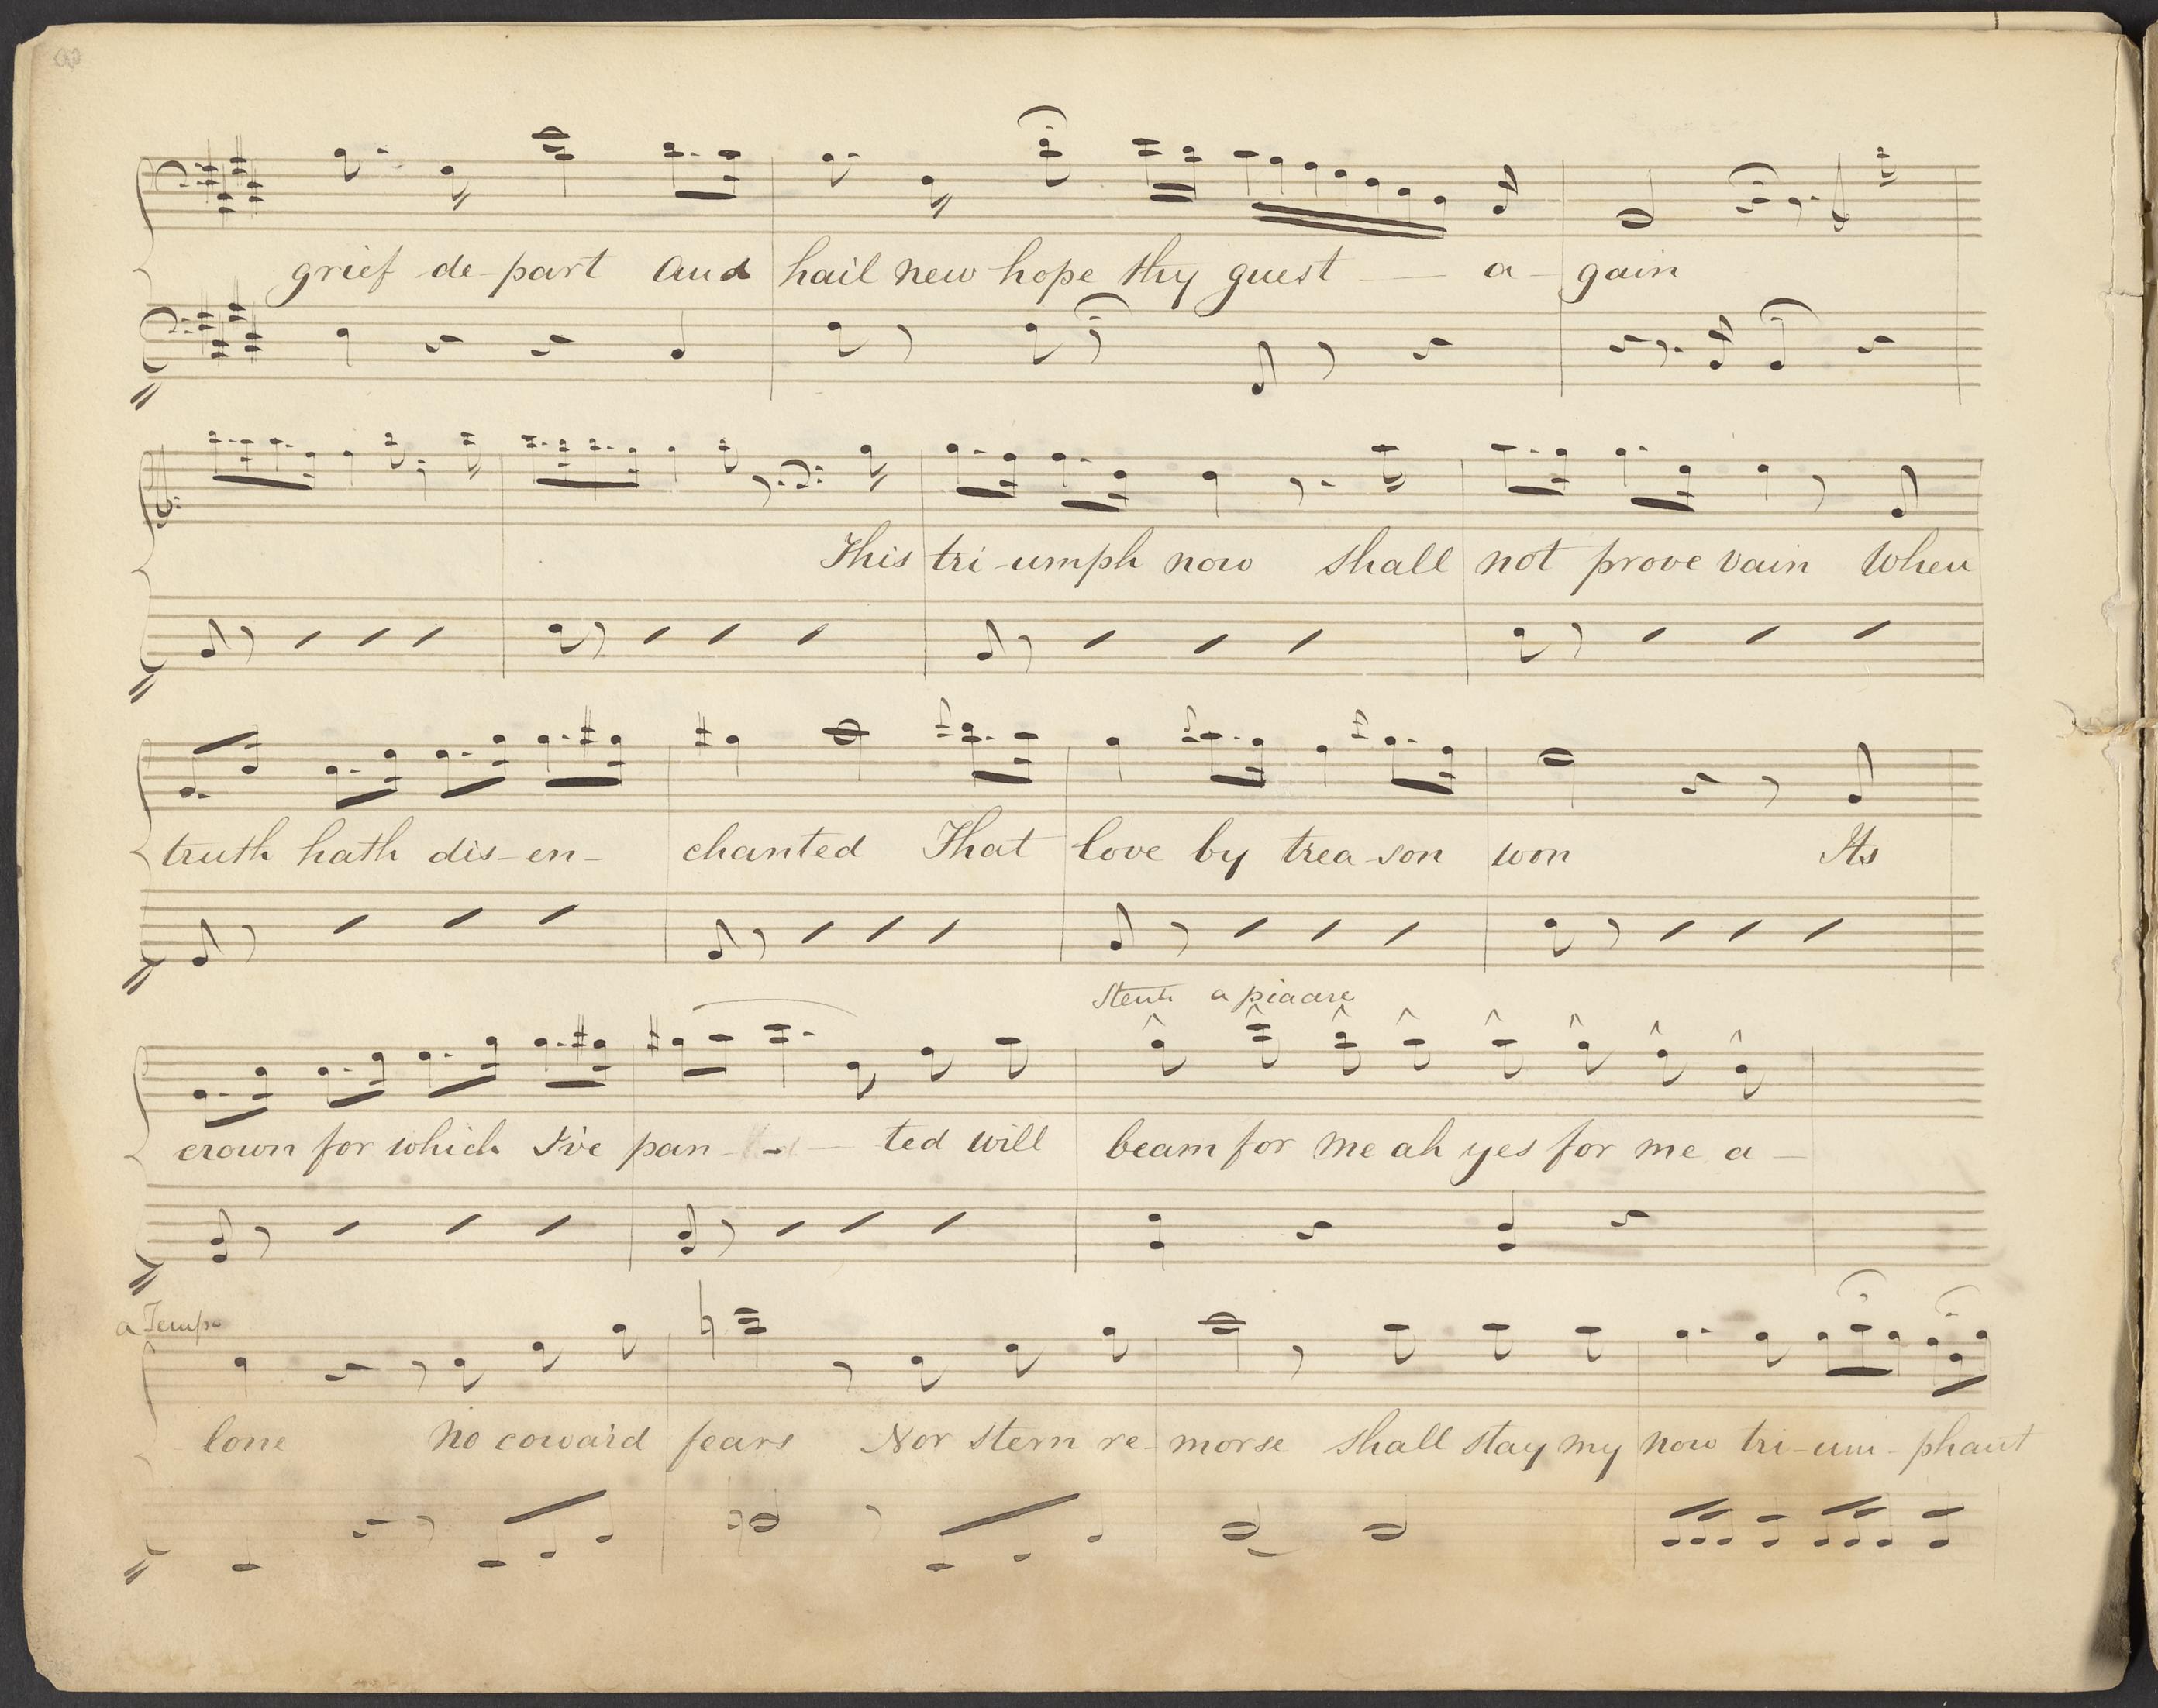 grief de-part and hail new hope thy guest — a-gain
This tri-umph now shall not prove vain When
truth hath dis-en-chanted That love by trea-son won Its
a piacere
crown for which I've pan - - ted will beam for me ah yes for me a-
a Tempo
lone no coward fears Nor stern re-morse shall stay my now tri-um-phant